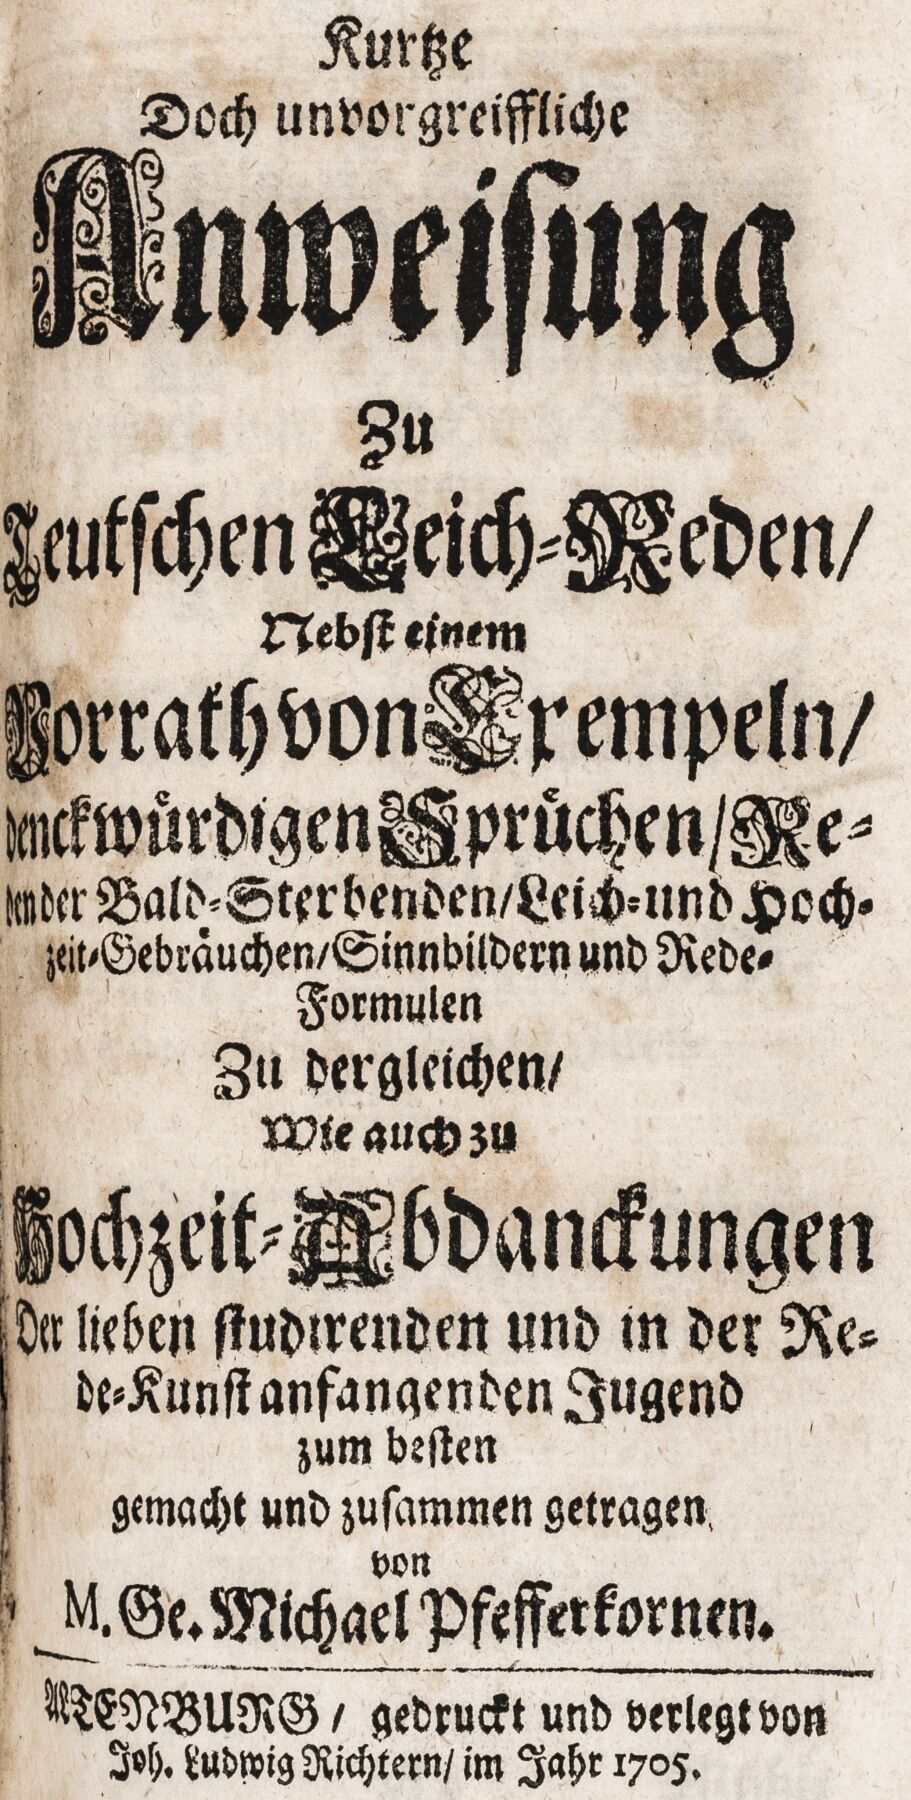 Kurtze
Doch unvorgreiffliche
Anweisung
Zu
Teutschen Leich-Reden/
Nebst einem
Vorrath von Exempeln/
denckwürdigen Sprüchen/ Re-
den der Bald-Sterbenden/ Leich- und Hoch-
zeit-Gebräuchen/ Sinnbildern und Rede-
Formulen
Zu dergleichen/
Wie auch zu
Hochzeit-Abdanckungen
Der lieben studirenden und in der Re-
de-Kunst anfangenden Jugend
zum besten
gemacht und zusammen getragen
von
M. Ge. Michael Pfefferkornen.
ALTENBURG/ gedruckt und verlegt von
Joh. Ludwig Richtern/ im Jahr 1705.